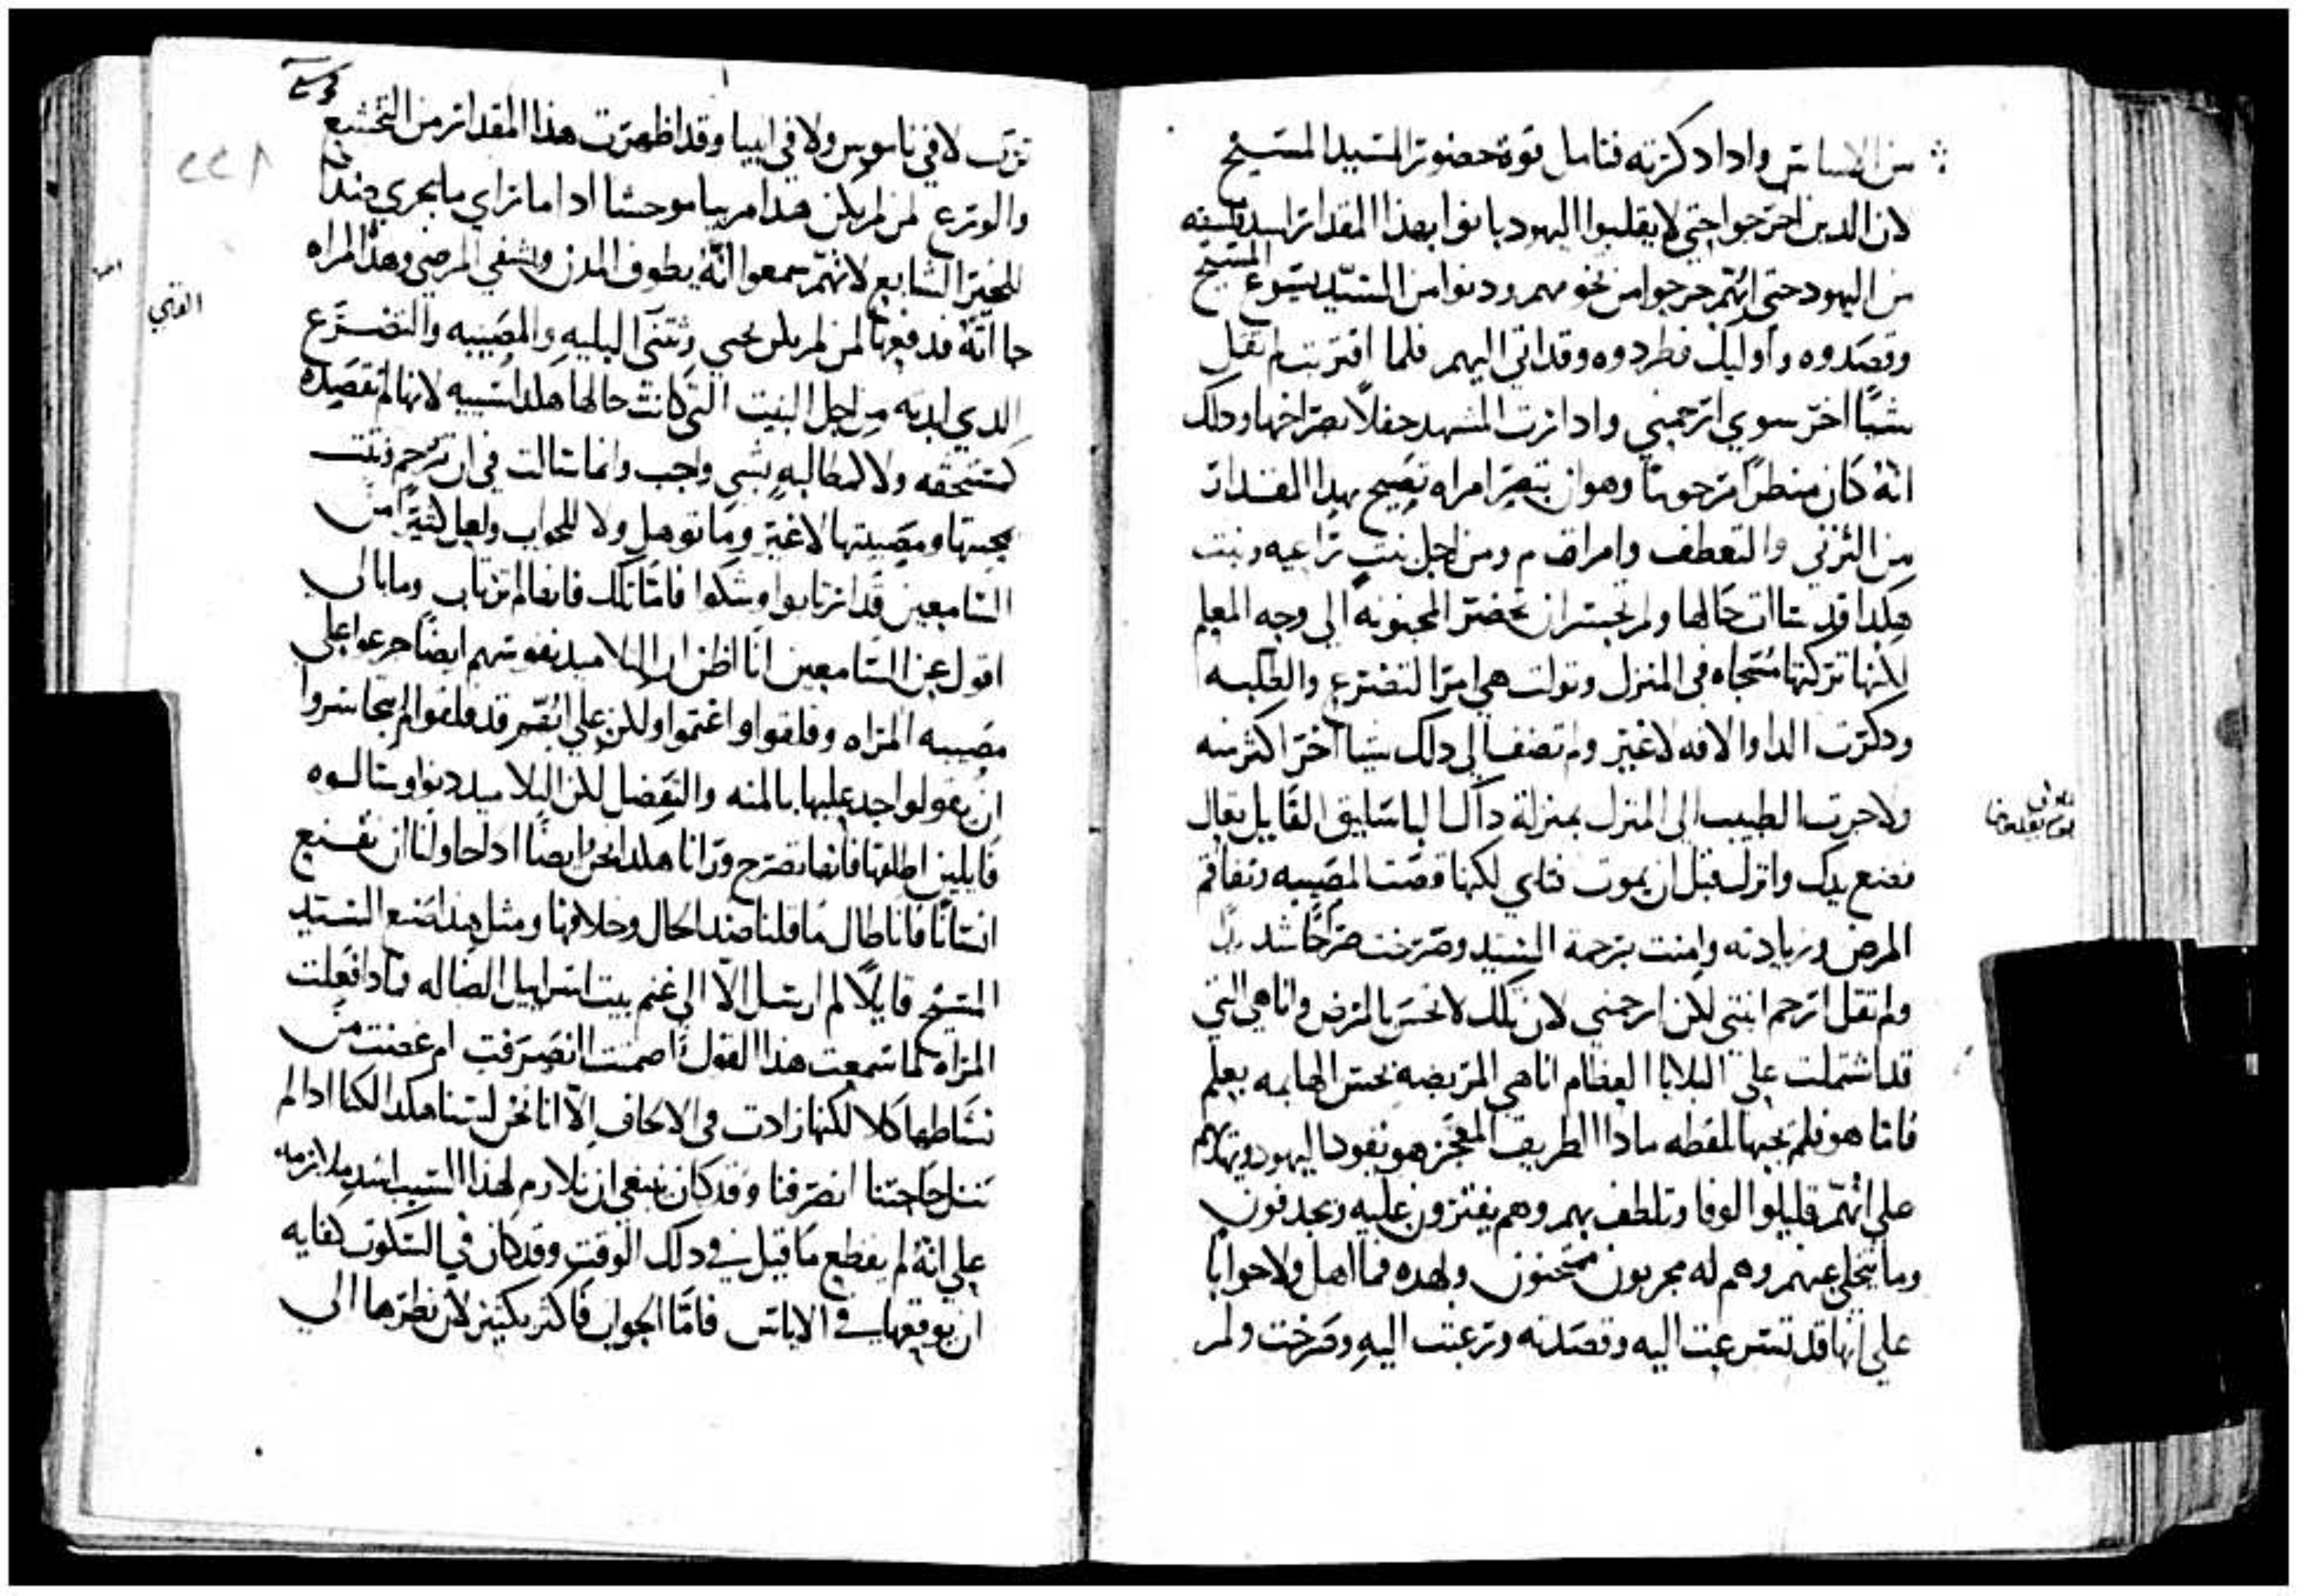 من الاساس واداد كرته فتامل قوة حضور السيد المسيح
لان الدين اخرجوا حتي لا يقلبوا اليهود بانوا بهذا المقدار اسد فلسفه
من اليهود حتي انهم خرجوا من تخومهم ودنوا من السيد يسوع المسيح
وقصدوه واوليك فطردوه وقد اتي اليهم فلما اقتربت لم تقل
شيا اخر سوي ارحمني واد ازرت المشهد حفلا بصراخها ودلك
انه كان منظرا مرحوما وهو ان تبصر امراه تصيح بهدا المقدار
من الترتي والتعطف وامراه ام ومن اجل بنت تراعيه وبنت
هكدا قد سات حالها ولم تجسر ان تحضر المجنونه الي وجه المعلم
لانها تركتها مسجاه في المنزل وتولت هي امر التضرع والطلبه
ودكرت الدا والافه لا غير ولم تضف الي دلك شيا اخر اكثر منه
ولا جرت الطبيب الي المنزل بمنزلة داك الباسليق القايل تعال
فضع يدك وانزل قبل ان يموت فتاي لكنها قصت المصيبه وتفاقم
المرض وزيادته وامنت برحمة السيد وصرخت صراخا شديدا
ولم تقل ارحم ابنتي لكن ارحمني لان تلك لا تحس بالمرض وانا هي التي
قد اشتملت علي البلايا العظام انا هي المريضه بحس الهايمه بعلم
فاما هو فلم يجبها لفظه مادا الطريف المعجز هو يقود اليهود ويتهادم
علي انهم قليلوا الوفا وتلطف بهم وهم يفترون عليه ويجدفون
وما يتخلي عنهم وهم له مجربون ممتحنون ولهده فما اهل ولا جوابا
علي انها قد تسرعت اليه وقصدته ورغبت اليه وصرخت ولم
ترب لا في ناموس ولا في انبيا وقد اظهرت هذا المقدار من التخشع
والورع لمن لم يكن هدا مريبا موحشا اد اما راي ما يجري ضدا
للخبر الشايع لانهم سمعوا انه يطوف المدن ويشفي المرضي وهذه المراه
جا انه قد دفعها لمن لم يكن يحيي وتثني البليه والمصيبه والتضرع
الدي ابدته من اجل البنت التي كانت حالها هكدا سييه لانها لم تقصده
كمستحقه ولا كمطالبه بشي واجب وانما سالت في ان ترحم وتثت
بحجتها ومصيبتها لا غير وما توهل ولا للجواب ولعل كثيرا من
السامعين قد ارتابوا وشكوا فاما تلك فانها لم ترتاب وما بالي
اقول عن السامعين انا اظن ان التلاميد نفوسهم ايضا جزعوا علي
مصيبه المراه وقلقوا واغتموا ولكن علي انهم قد قلقوا لم يتجاسروا
ان يقولوا جد عليها بالمنه والتفضل لكن التلاميد دنوا وسالوه
قايلين اطلقها فانها تصرخ ورانا هكدا نحن ايضا ادا حاولنا ان نقنع
انسانا فاننا طال ما قلنا ضد الحال وخلافها ومثل هذا صنع السيد
المسيح قايلا لم ارسل الا الي غنم بيت اسراييل الضاله فمادا فعلت
المراه لما سمعت هدا القول اصمتت انصرفت ام غضنت من
نشاطها كلا لكنها زادت في الالحاف الا اننا نحن لسنا هكدا لكنا ادا لم
ننل حاجتنا انصرفنا وقد كان ينبغي ان نلازم لهذا السبب اشد ملازمه
علي انه لم يقطع ما قيل في دلك الوقت وقد كان في السكوت كفايه
ان يوقعها في الاياس فاما الجواب فاكثر بكثير لان نظرها الي